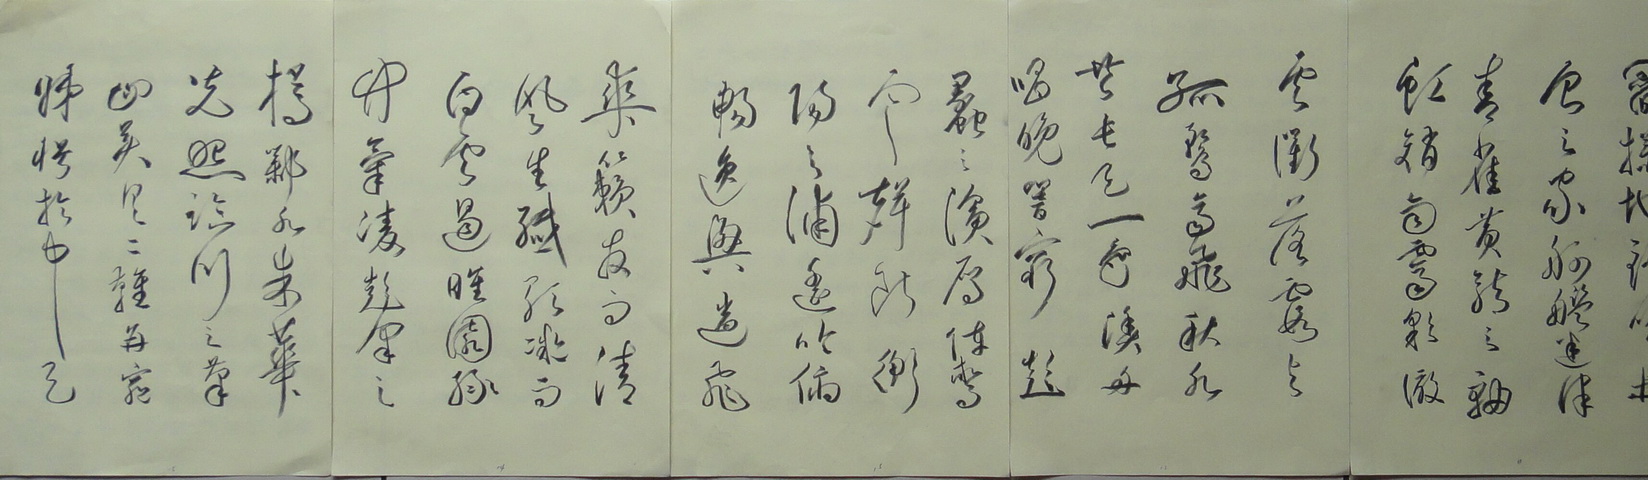 食之家舸艦迷津
青雀黃龍之舳
虹銷雨霽彩徹
雲衢落霞與
孤鶩齊飛秋水
共長天一色漁舟
唱晚響窮彭
蠡之濱雁陣驚
寒聲斷衡
陽之浦遙吟俯
暢逸興遄飛
爽籟發而清
風生纖歌凝而
白雲遏睢園綠
竹氣凌彭澤之
樽鄴水朱華
光照臨川之筆
四美具二難并窮
睇眄於中天